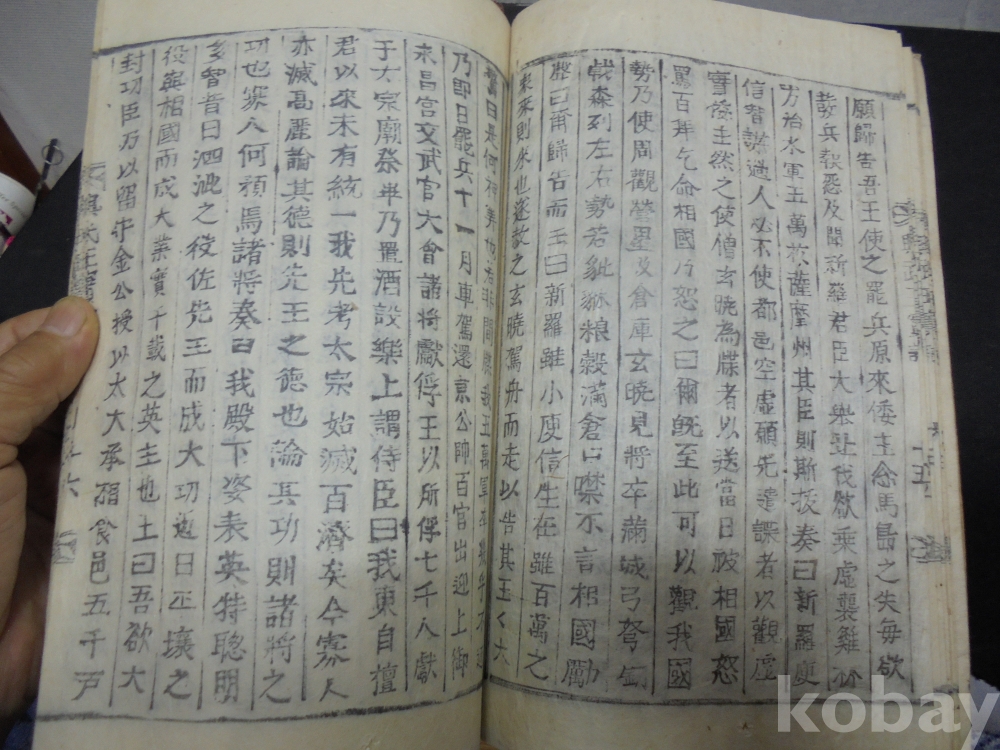 願歸告吾王使之罷兵原來倭主念馬島之失每欲
發兵報怨及聞新羅君臣大擧北伐欲乘虛襲雞林
方治水軍五萬於薩摩州其臣則斯接奏曰新羅庾
信智謀過人必不使都邑空虛願先遣諜者以觀虛
實倭主然之使僧玄曉為諜者以送當日被相國怒
罵百拜乞命相國乃恕之曰爾旣至此可以觀我國
勢乃使周觀營壘及倉庫玄曉見將卒滿城弓弩釰
戟森列左右勢若貔貅粮穀滿倉口噤不言相國勵
聲曰甭歸告而王曰新羅雖小庾信生在雖百萬之
來來則來也遂放之玄曉駕舟而走以告其王
乃即日罷兵十一月車駕還京公帥百官出迎上御
永昌宮文武官大會諸將獻俘王以所俘七千人獻
于大宗廟祭畢乃置酒設樂上謂侍臣曰我東自檀
君以來未有統一我先考太宗始滅百濟矣今寡人
亦滅高麗論其德則先王之德也論其功則諸將之
功也寡人何預焉諸將奏曰我殿下姿表英特聰明
多智昔日泗沘之役佐先王而成大功近日丕壤之
役與相國而成大業實千載之英主也上曰吾欲大
封功臣乃以留守金公授以太大承 食邑五千戸
kobay